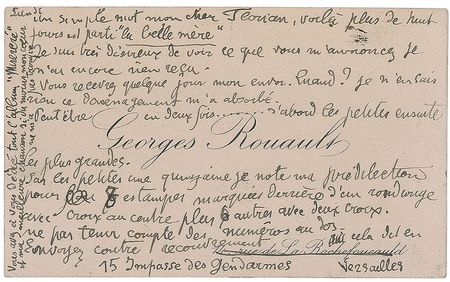 un simple mot mon cher Florian, voilà plus de huit
jours est parti "la belle mère"
Je suis très désireux de voir ce que vous m'annoncez je
n'ai encore rien reçu.
Vous recevrez quelque jour mon envoi. Quand? je n'en sais
rien ce Déménagement m'a absorbé.
Peut être en deux fois..... d'abord les petites ensuite
Georges Rouault
les plus grandes.
Sur les petites une quinzaine je note ma prédilection
pour 8 estampes marquées derrière d'un rond rouge
avec croix au centre plus 6 autres avec deux croix.
ne pas tenir compte des numéros au dos
cela dit en
Envoyez contre recouvrement
rue de La Rochefoucauld
15 Impasse des Gendarmes Versailles
Vous avez à vous dédié tout l'album "Miserere"
et ma meilleure chanson si du moins mon cœur